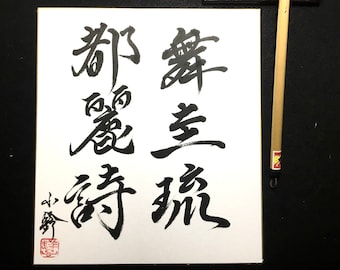 舞圭琉
都麗詩
小鈴